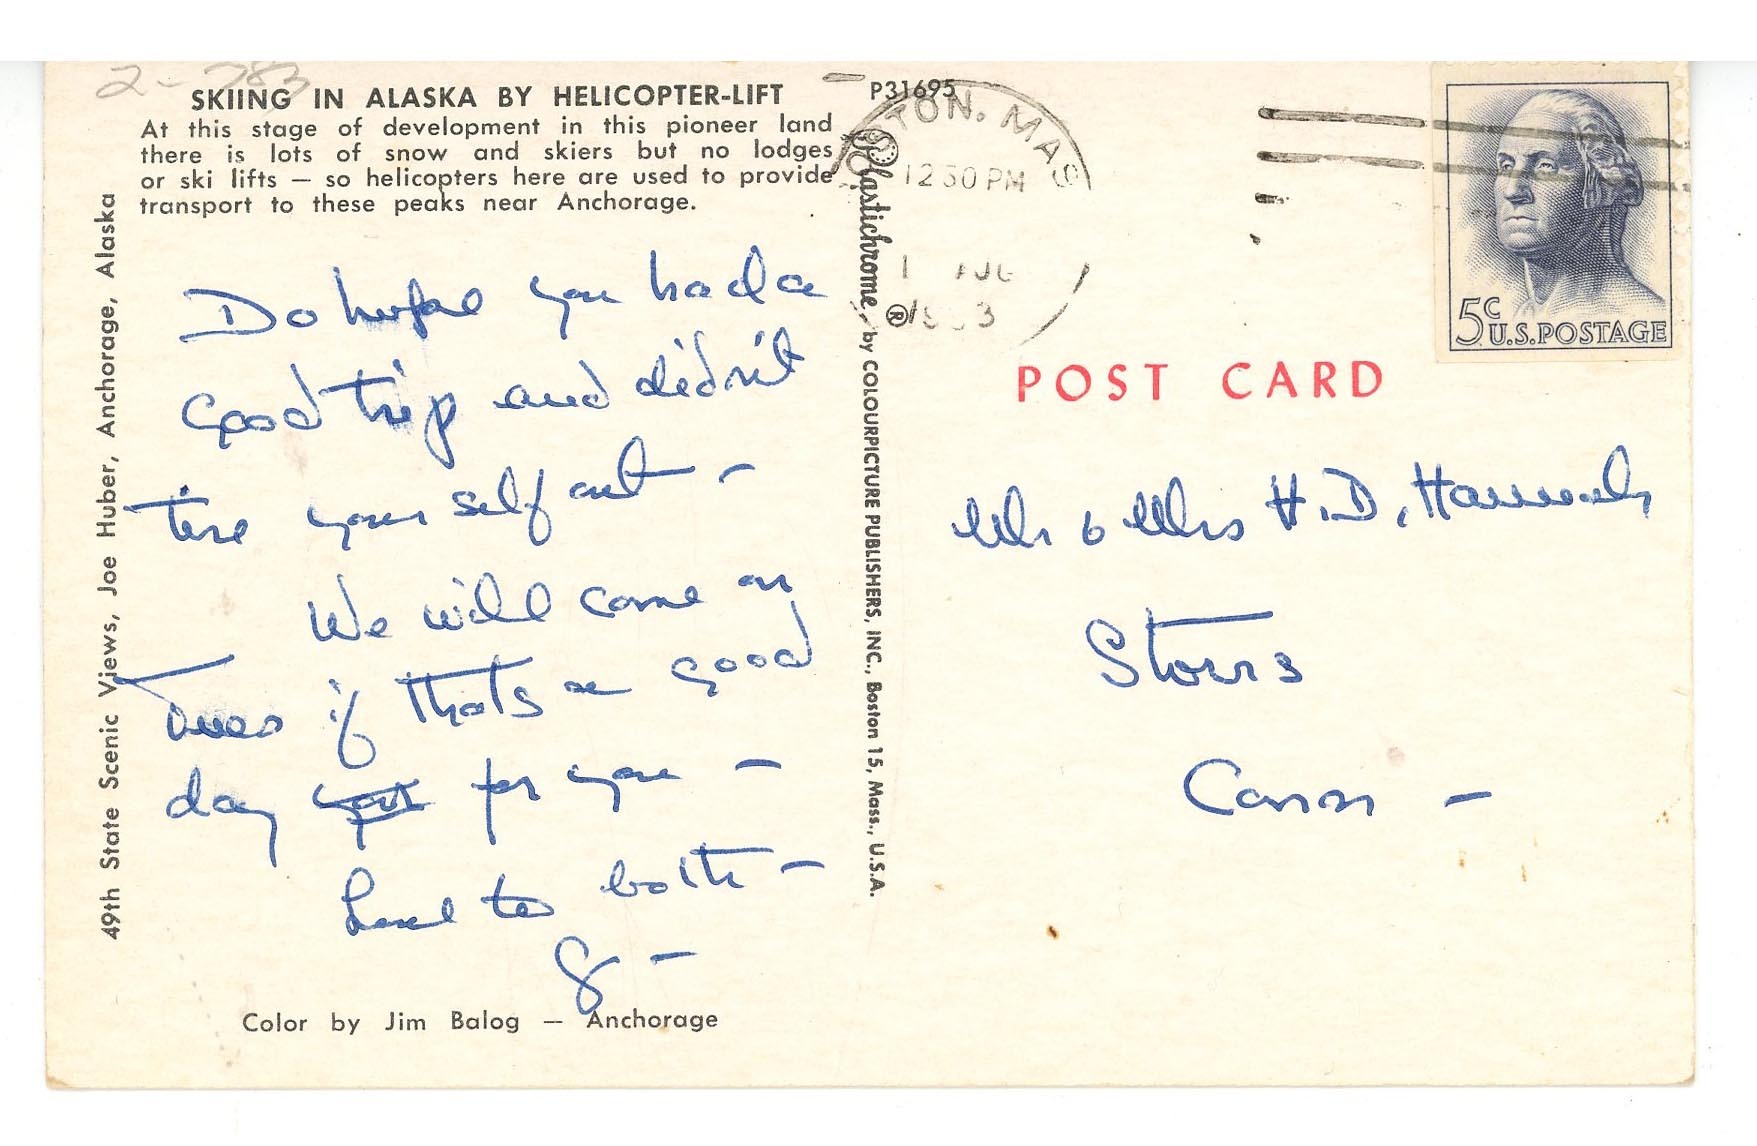 2-783
SKIING IN ALASKA BY HELICOPTER-LIFT
At this stage of development in this pioneer land
there is lots of snow and skiers but no lodges
or ski lifts — so helicopters here are used to provide
transport to these peaks near Anchorage.
49th State Scenic Views, Joe Huber, Anchorage, Alaska
Do hope you had a
good trip and didn't
tire yourself out -
We will come on
Tues if thats a good
day for you -
Love to both -
Color by Jim Balog — Anchorage
P31695
Plastichrome ® by COLOURPICTURE PUBLISHERS, INC., Boston 15, Mass., U.S.A.
TON. MAS
12 30 PM
1 AUG
5c U.S. POSTAGE
POST CARD
Mr & Mrs H.D.
Storrs
Conn -